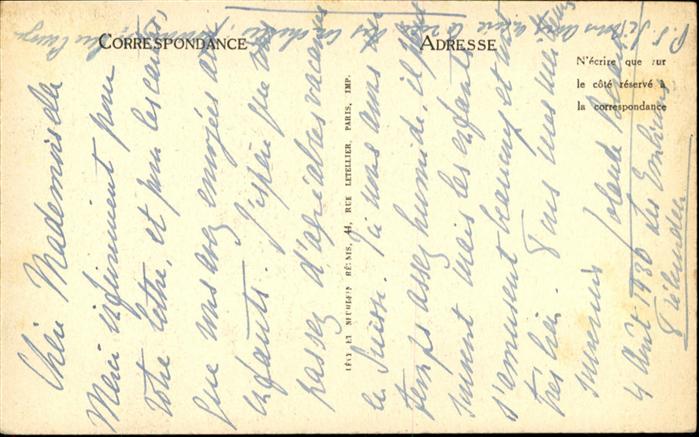 CORRESPONDANCE
ADRESSE
N'écrire que sur
le côté réservé à
la correspondance
LÉVY ET NEURDEIN RÉUNIS, 44, RUE LETELLIER, PARIS, IMP.
Chère Mademoiselle
Merci infiniment pour
votre lettre, et pour les cartes
que vous avez envoyées aux
enfants. J'espère que vous
passez d'agréables vacances
Suisse. Ici nous avons
temps assez humide, il pleut
souvent mais les enfants
s'amusent beaucoup et vont
très bien. Tous mes meilleurs
souvenirs
4 Août 1930
P.S.